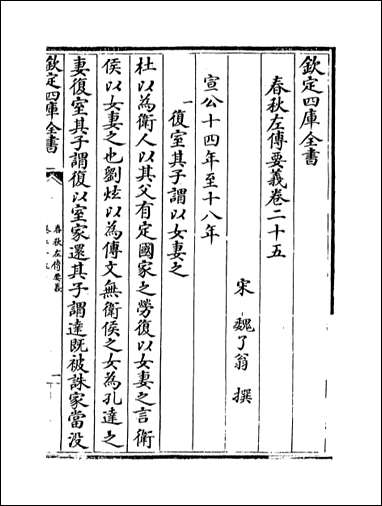 欽定四庫全書
春秋左傳要義卷二十五
宋 魏了翁 撰
宣公十四年至十八年
一復室其子謂以女妻之
杜以為衛人以其父有定國家之勞復以女妻之言衛
侯以女妻之也劉炫以為傳文無衛侯之女為孔達之
妻復室其子謂復以室家還其子謂達既被誅家當沒
欽定四庫全書
春秋左傳要義